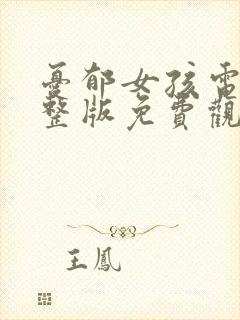 憂郁女孩電
整版免費觀
王鳳